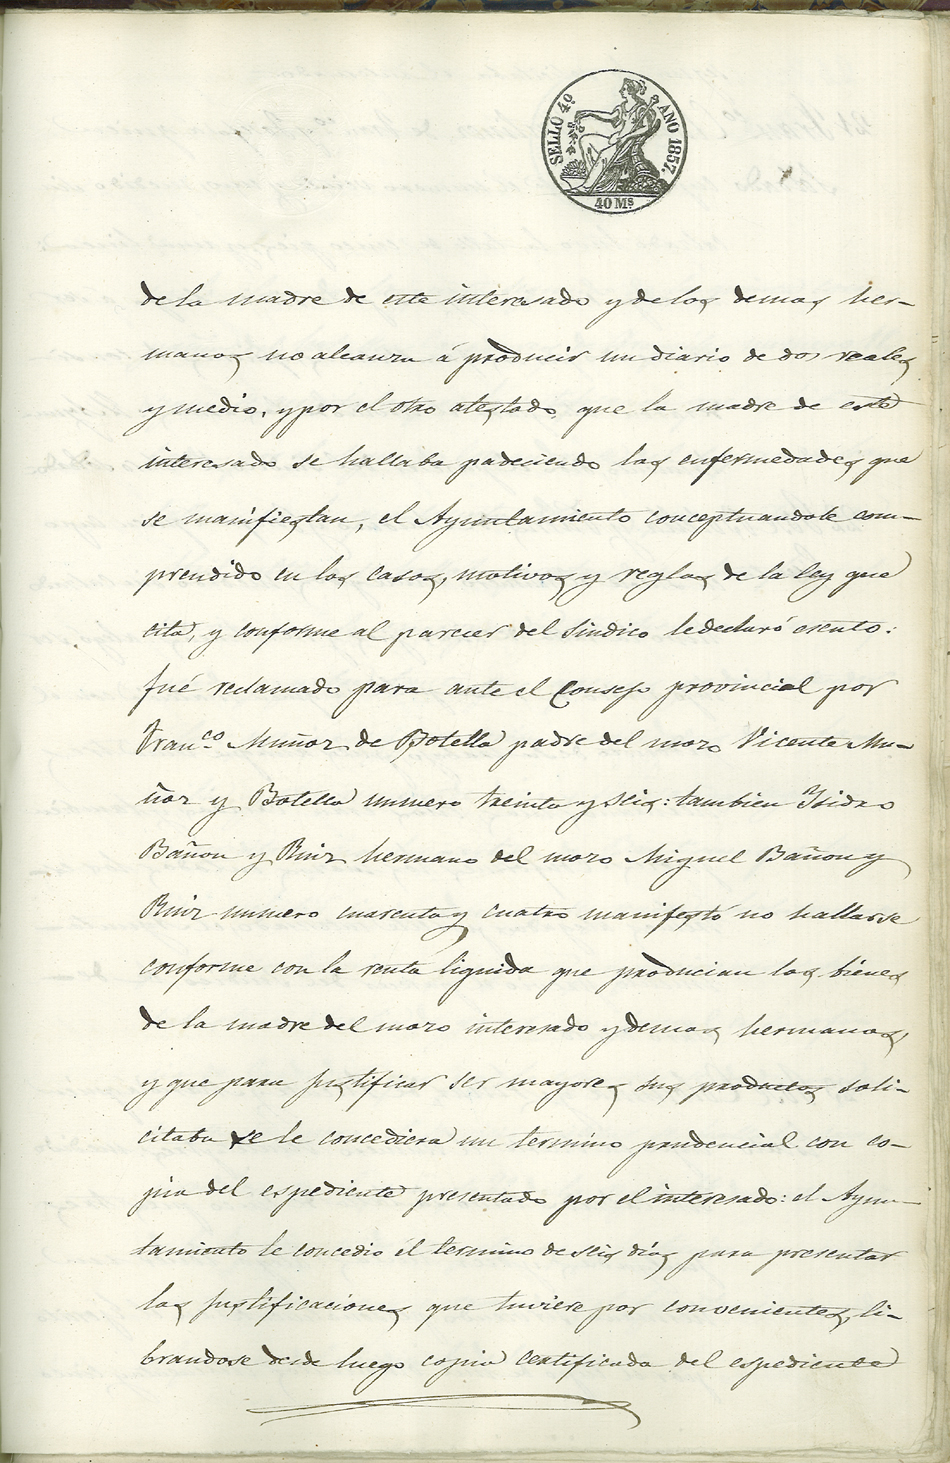 SELLO 4º AÑO 1857.
40 Ms
de la madre de este interesado y de los demas her-
manos no alcanza á producir un diario de dos reales
y medio, y por el otro atestado que la madre de este
interesado se hallaba padeciendo las enfermedades que
se manifiestan, el Ayuntamiento conceptuandole com-
prendido en los casos, motivos y reglas de la ley que
cita, y conforme al parecer del Sindico le declaró esento:
fué reclamado para ante el Consejo provincial por
Franco Muñoz de Botella padre del mozo Vicente Mu-
ñoz y Botella numero treinta y seis: tambien Ysidro
Bañon y Ruiz hermano del mozo Miguel Bañon y
Ruiz numero cuarenta y cuatro manifestó no hallarse
conforme con la renta liquida que producian los bienes
de la madre del mozo interesado y demas hermanos,
y que para justificar ser mayores sus productos soli-
citaba se le concediera un termino prudencial con co-
pia del espediente presentado por el interesado: el Ayun-
tamiento le concedio el termino de seis días para presentar
las justificaciones que tuviere por convenientes, li-
brandose desde luego copia certificada del espediente